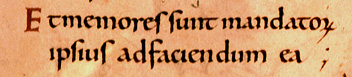 Et memores sunt mandatoꝝ
ipsius ad faciendum ea ;